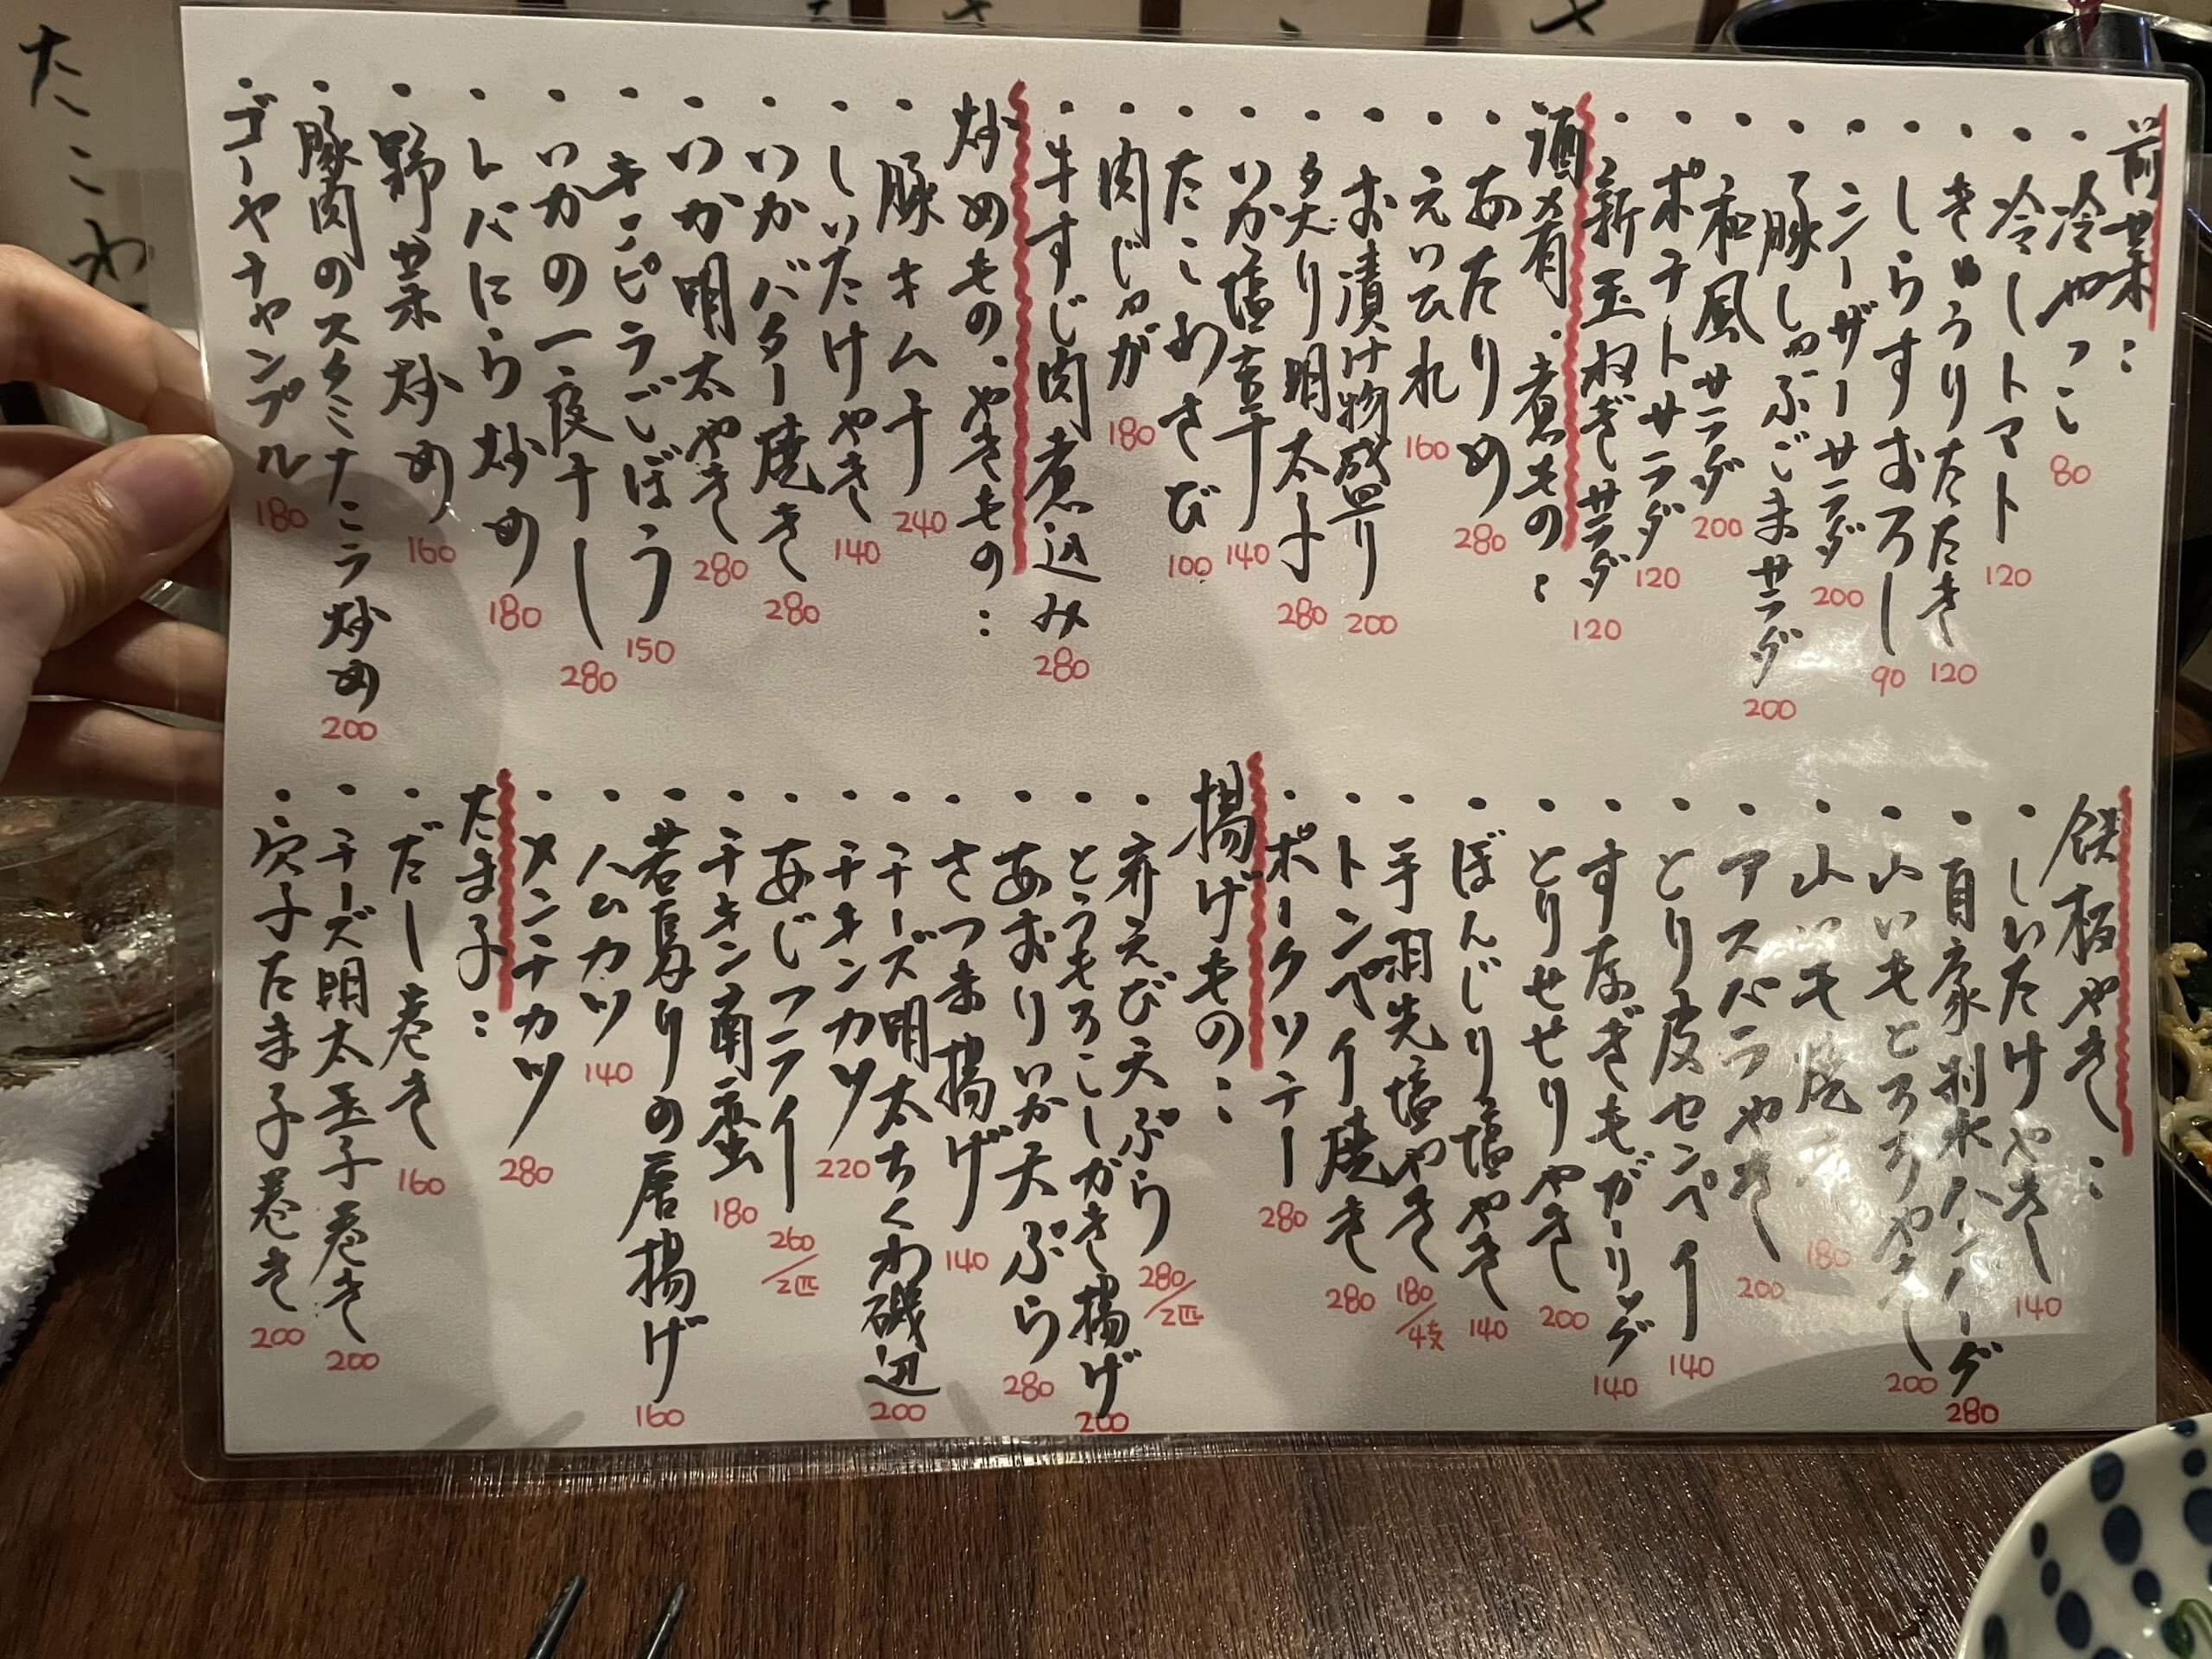 前菜:
・冷やっこ 80
・冷しトマト 120
・きゅうりたたき 120
・しらすおろし 90
・シーザーサラダ 200
・豚しゃぶごまサラダ 200
・和風サラダ 200
・ポテトサラダ 120
・新玉ねぎサラダ 120
酒肴・煮もの:
・あたりめ 280
・えいひれ 160
・お漬け物盛り 200
・炙り明太子 280
・いか塩辛 140
・たこわさび 100
・肉じゃが 180
・牛すじ肉煮込み 280
炒めもの、やきもの:
・豚キムチ 240
・しいたけやき 140
・いかバター焼き 280
・いか明太やき 280
・キンピラごぼう 150
・いかの一夜干し 280
・レバにら炒め 180
・野菜炒め 160
・豚肉のスタミナニラ炒め 200
・ゴーヤチャンプル 180
鉄板やき:
・しいたけやき 140
・自家制氷ハンバーグ 280
・山いもとろろやき 200
・山いも焼 180
・アスパラやき 200
・とり皮センペイ 140
・すなぎもガーリック 140
・とりせせりやき 200
・ぼんじり塩やき 140
・手羽先塩やき 180/4支
・トンペイ焼き 280
・ポークソテー 280
揚げもの:
・弃えび天ぷら 280/2匹
・とうもろこしかき揚げ 200
・あおりいか天ぷら 280
・さつま揚げ 140
・チーズ明太ちくわ磯辺 200
・チキンカツ 220
・あじフライ 260/2匹
・チキン南蛮 180
・若鳥りの唐揚げ 160
・ハムカツ 140
・メンチカツ 280
たま子:
・だし巻き 160
・チーズ明太玉子巻き 200
・穴子たま子巻き 200
たこわ